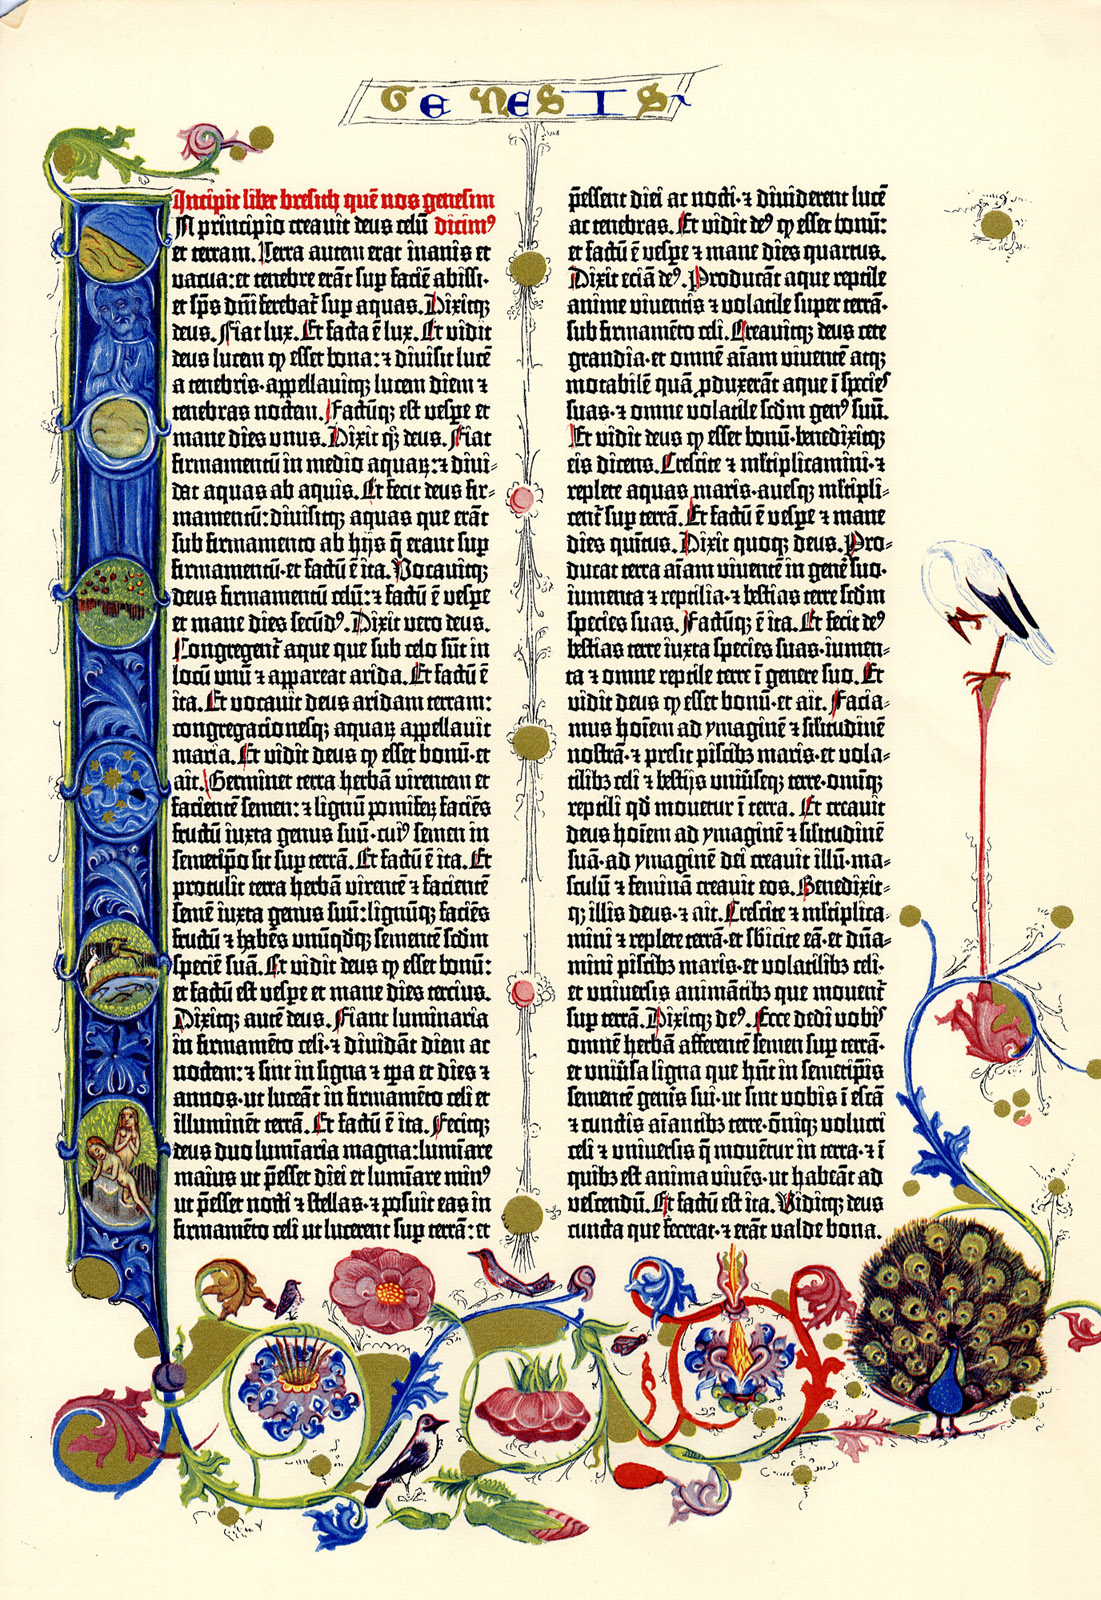 GENESIS
Incipit liber bresich quē nos genesim
In principio creavit deus celū dicimꝰ
et terram. Terra autem erat inanis et
vacua: et tenebre erāt sup faciē abissi·
et sp̄s dn̄i ferebat̄ sup aquas. Dixitqꝫ
deus. Fiat lux. Et facta ē lux. Et vidit
deus lucem ꝙ esset bona: ⁊ divisit lucē
a tenebris· appellavitqꝫ lucem diem ⁊
tenebras noctem. Factūqꝫ est vespe et
mane dies unus. Dixit qꝫ deus. Fiat
firmamentū in medio aquaꝝ: ⁊ divi-
dat aquas ab aquis. Et fecit deus fir-
mamentū: divisitqꝫ aquas que erāt
sub firmamento ab hijs q̄ erant sup
firmamentū· et factū ē ita. Vocavitqꝫ
deus firmamentū celū: ⁊ factū ē vespe
et mane dies secūdꝰ. Dixit vero deus.
Congregent̄ aque que sub celo sūt in
locū unū ⁊ appareat arida. Et factū ē
ita. Et vocavit deus aridam terram:
congregacionesqꝫ aquaꝝ appellavit
maria. Et vidit deus ꝙ esset bonū· et
ait. Germinet terra herbā virentem et
facientē semen: ⁊ lignū pomifeꝝ faciēs
fructū iuxta genus suū· cuiꝰ semen in
semetip̄o sit sup terrā. Et factū ē ita. Et
protulit terra herbā virentē ⁊ facientē
semē iuxta genus suū: lignūqꝫ faciēs
fructū ⁊ habēs unūqdqꝫ sementē scdm
speciē suā. Et vidit deus ꝙ esset bonū:
et factū est vespe et mane dies tercius.
Dixitqꝫ autē deus. Fiant luminaria
in firmamēto celi· ⁊ dividāt diem ac
noctem: ⁊ sint in signa ⁊ tp̄a et dies ⁊
annos· ut luceāt in firmamēto celi et
illuminēt terrā. Et factū ē ita. Fecitqꝫ
deus duo lumīaria magna: lumīare
maius ut p̄esset diei et lumīare minꝰ
ut p̄esset nocti ⁊ stellas· ⁊ posuit eas in
firmamēto celi ut lucerent sup terrā: et
p̄essent diei ac nocti· ⁊ dividerent lucē
ac tenebras. Et vidit deꝰ ꝙ esset bonū:
et factū ē vespe ⁊ mane dies quartus.
Dixit eciā deꝰ. Producāt aque reptile
anime viventis ⁊ volatile super terrā·
sub firmamēto celi. Creavitqꝫ deus cete
grandia· et omnē aīam viventē atqꝫ
motabilē quā ꝓduxerāt aque ī species
suas· ⁊ omne volatile scdm genꝰ suū.
Et vidit deus ꝙ esset bonū· benedixitqꝫ
eis dicens. Crescite ⁊ ml̄tiplicamini· ⁊
replete aquas maris· avesqꝫ ml̄tipli-
cent̄ sup terrā. Et factū ē vespe ⁊ mane
dies quītus. Dixit quoqꝫ deus. Pro-
ducat terra aīam viventē in genē suo·
iumenta ⁊ reptilia· ⁊ bestias terre scdm
species suas. Factūqꝫ ē ita. Et fecit deꝰ
bestias terre iuxta species suas· iumen-
ta ⁊ omne reptile terre ī genere suo. Et
vidit deus ꝙ esset bonū· et ait. Facia-
mus hoīem ad ymaginē ⁊ silitudinē
nostrā· ⁊ presit piscibꝫ maris· et vola-
tilibꝫ celi ⁊ bestijs univ̄seqꝫ terre· omīqꝫ
reptili qd movetur ī terra. Et creavit
deus hoīem ad ymaginē ⁊ silitudinē
suā· ad ymaginē dei creavit illū· ma-
sculū ⁊ feminā creavit eos. Benedixit-
qꝫ illis deus· ⁊ ait. Crescite ⁊ ml̄tiplica-
mini ⁊ replete terrā· et sbicite eā· et dn̄a-
mini piscibꝫ maris· et volatilibꝫ celi·
et universis animātibꝫ que movent̄
sup terrā. Dixitqꝫ deꝰ. Ecce dedi vobis
omnē herbā afferentē semen sup terrā·
et univ̄sa ligna que hn̄t in semetip̄is
sementē genīs sui· ut sint vobis ī escā
⁊ cunctis aīantibꝫ terre· ōniqꝫ volucri
celi ⁊ universis q̄ movētur in terra· ⁊ ī
quibꝫ est anima vivēs· ut habeāt ad
vescendū. Et factū est ita. Viditqꝫ deus
cuncta que fecerat· ⁊ erāt valde bona.